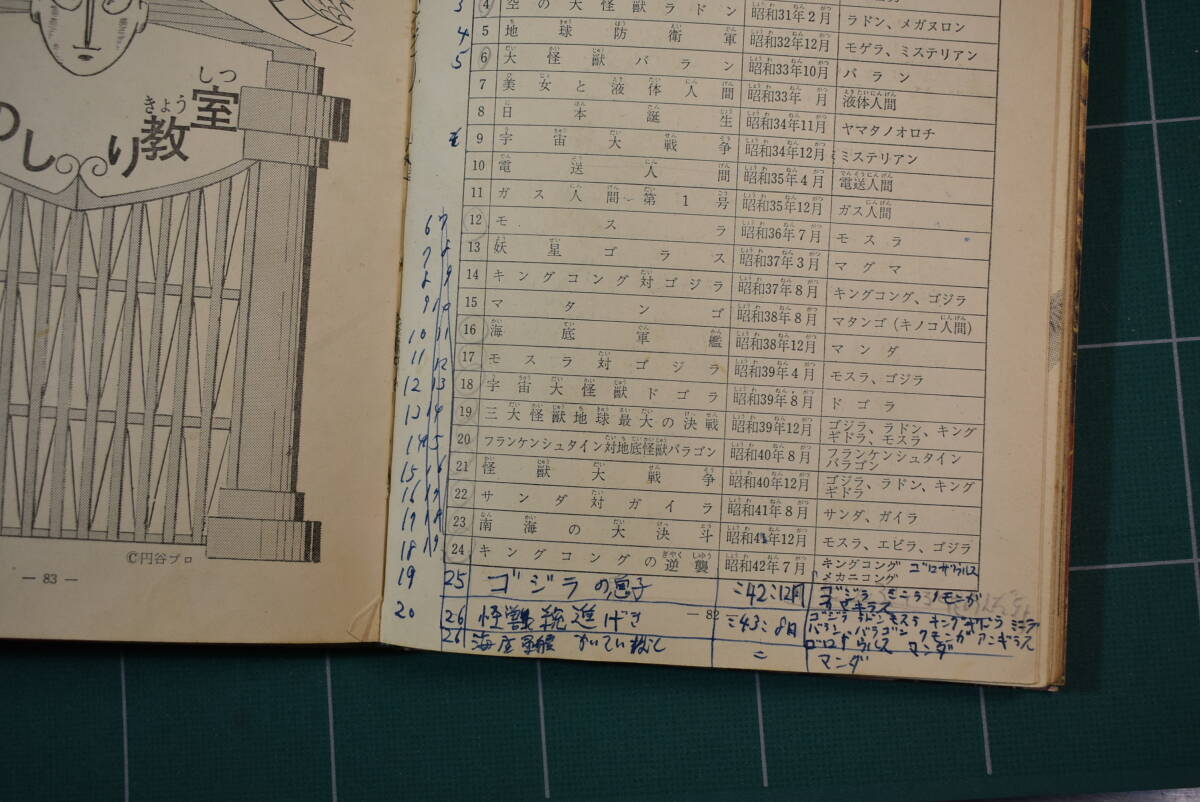 しつ
室
きょう
教
のしり
©円谷プロ
— 83 —
3 4 空の大怪獣ラドン 昭和31年2月 ラドン、メガヌロン
4 5 地球防衛軍 昭和32年12月 モゲラ、ミステリアン
5 6 大怪獣バラン 昭和33年10月 バラン
7 美女と液体人間 昭和33年 月 液体人間
8 日本誕生 昭和34年11月 ヤマタノオロチ
9 宇宙大戦争 昭和34年12月 ミステリアン
10 電送人間 昭和35年4月 電送人間
11 ガス人間第1号 昭和35年12月 ガス人間
6 7 12 モスラ 昭和36年7月 モスラ
7 8 13 妖星ゴラス 昭和37年3月 マグマ
8 9 14 キングコング対ゴジラ 昭和37年8月 キングコング、ゴジラ
9 10 15 マタンゴ 昭和38年8月 マタンゴ(キノコ人間)
10 11 16 海底軍艦 昭和38年12月 マンダ
11 12 17 モスラ対ゴジラ 昭和39年4月 モスラ、ゴジラ
12 13 18 宇宙大怪獣ドゴラ 昭和39年8月 ドゴラ
13 14 19 三大怪獣地球最大の決戦 昭和39年12月 ゴジラ、ラドン、キングギドラ、モスラ
14 15 20 フランケンシュタイン対地底怪獣バラゴン 昭和40年8月 フランケンシュタイン バラゴン
15 16 21 怪獣大戦争 昭和40年12月 ゴジラ、ラドン、キングギドラ
16 17 22 サンダ対ガイラ 昭和41年8月 サンダ、ガイラ
17 18 23 南海の大決斗 昭和41年12月 モスラ、エビラ、ゴジラ
18 19 24 キングコングの逆襲 昭和42年7月 キングコング ゴロザウルス メカニコング
19 25 ゴジラの息子 〃42〃12月 ゴジラ ミニラ クモンガ カマキラス
— 82 —
20 26 怪獣総進げき 〃43〃8月 ゴジラ ラドン モスラ キングギドラ ミニラ バラン バラゴン クモンガ アンギラス ゴロザウルス マンダ
26 海底軍艦 〃 マンダ